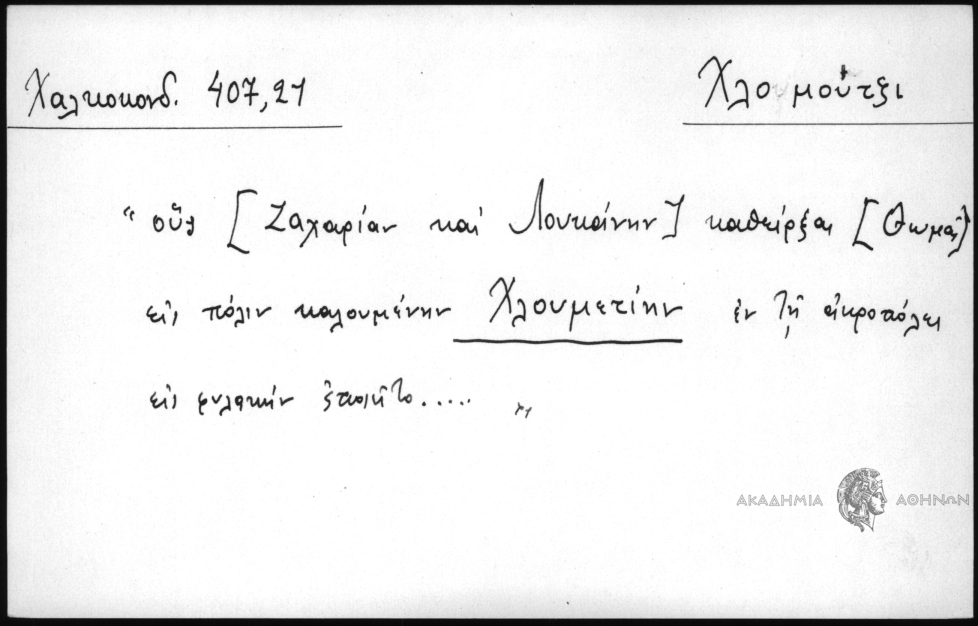 Χαλκοκονδ. 407,21
Χλουμούτζι
“ οὓς [Ζαχαρίαν καὶ Λουκάνην] καθείρξας [Θωμᾶς]
εἰς πόλιν καλουμένην Χλουμετίην ἐν τῇ ἀκροπόλει
εἰς φυλακὴν ἐποιεῖτο..... ”
ΑΚΑΔΗΜΙΑ ΑΘΗΝΩΝ